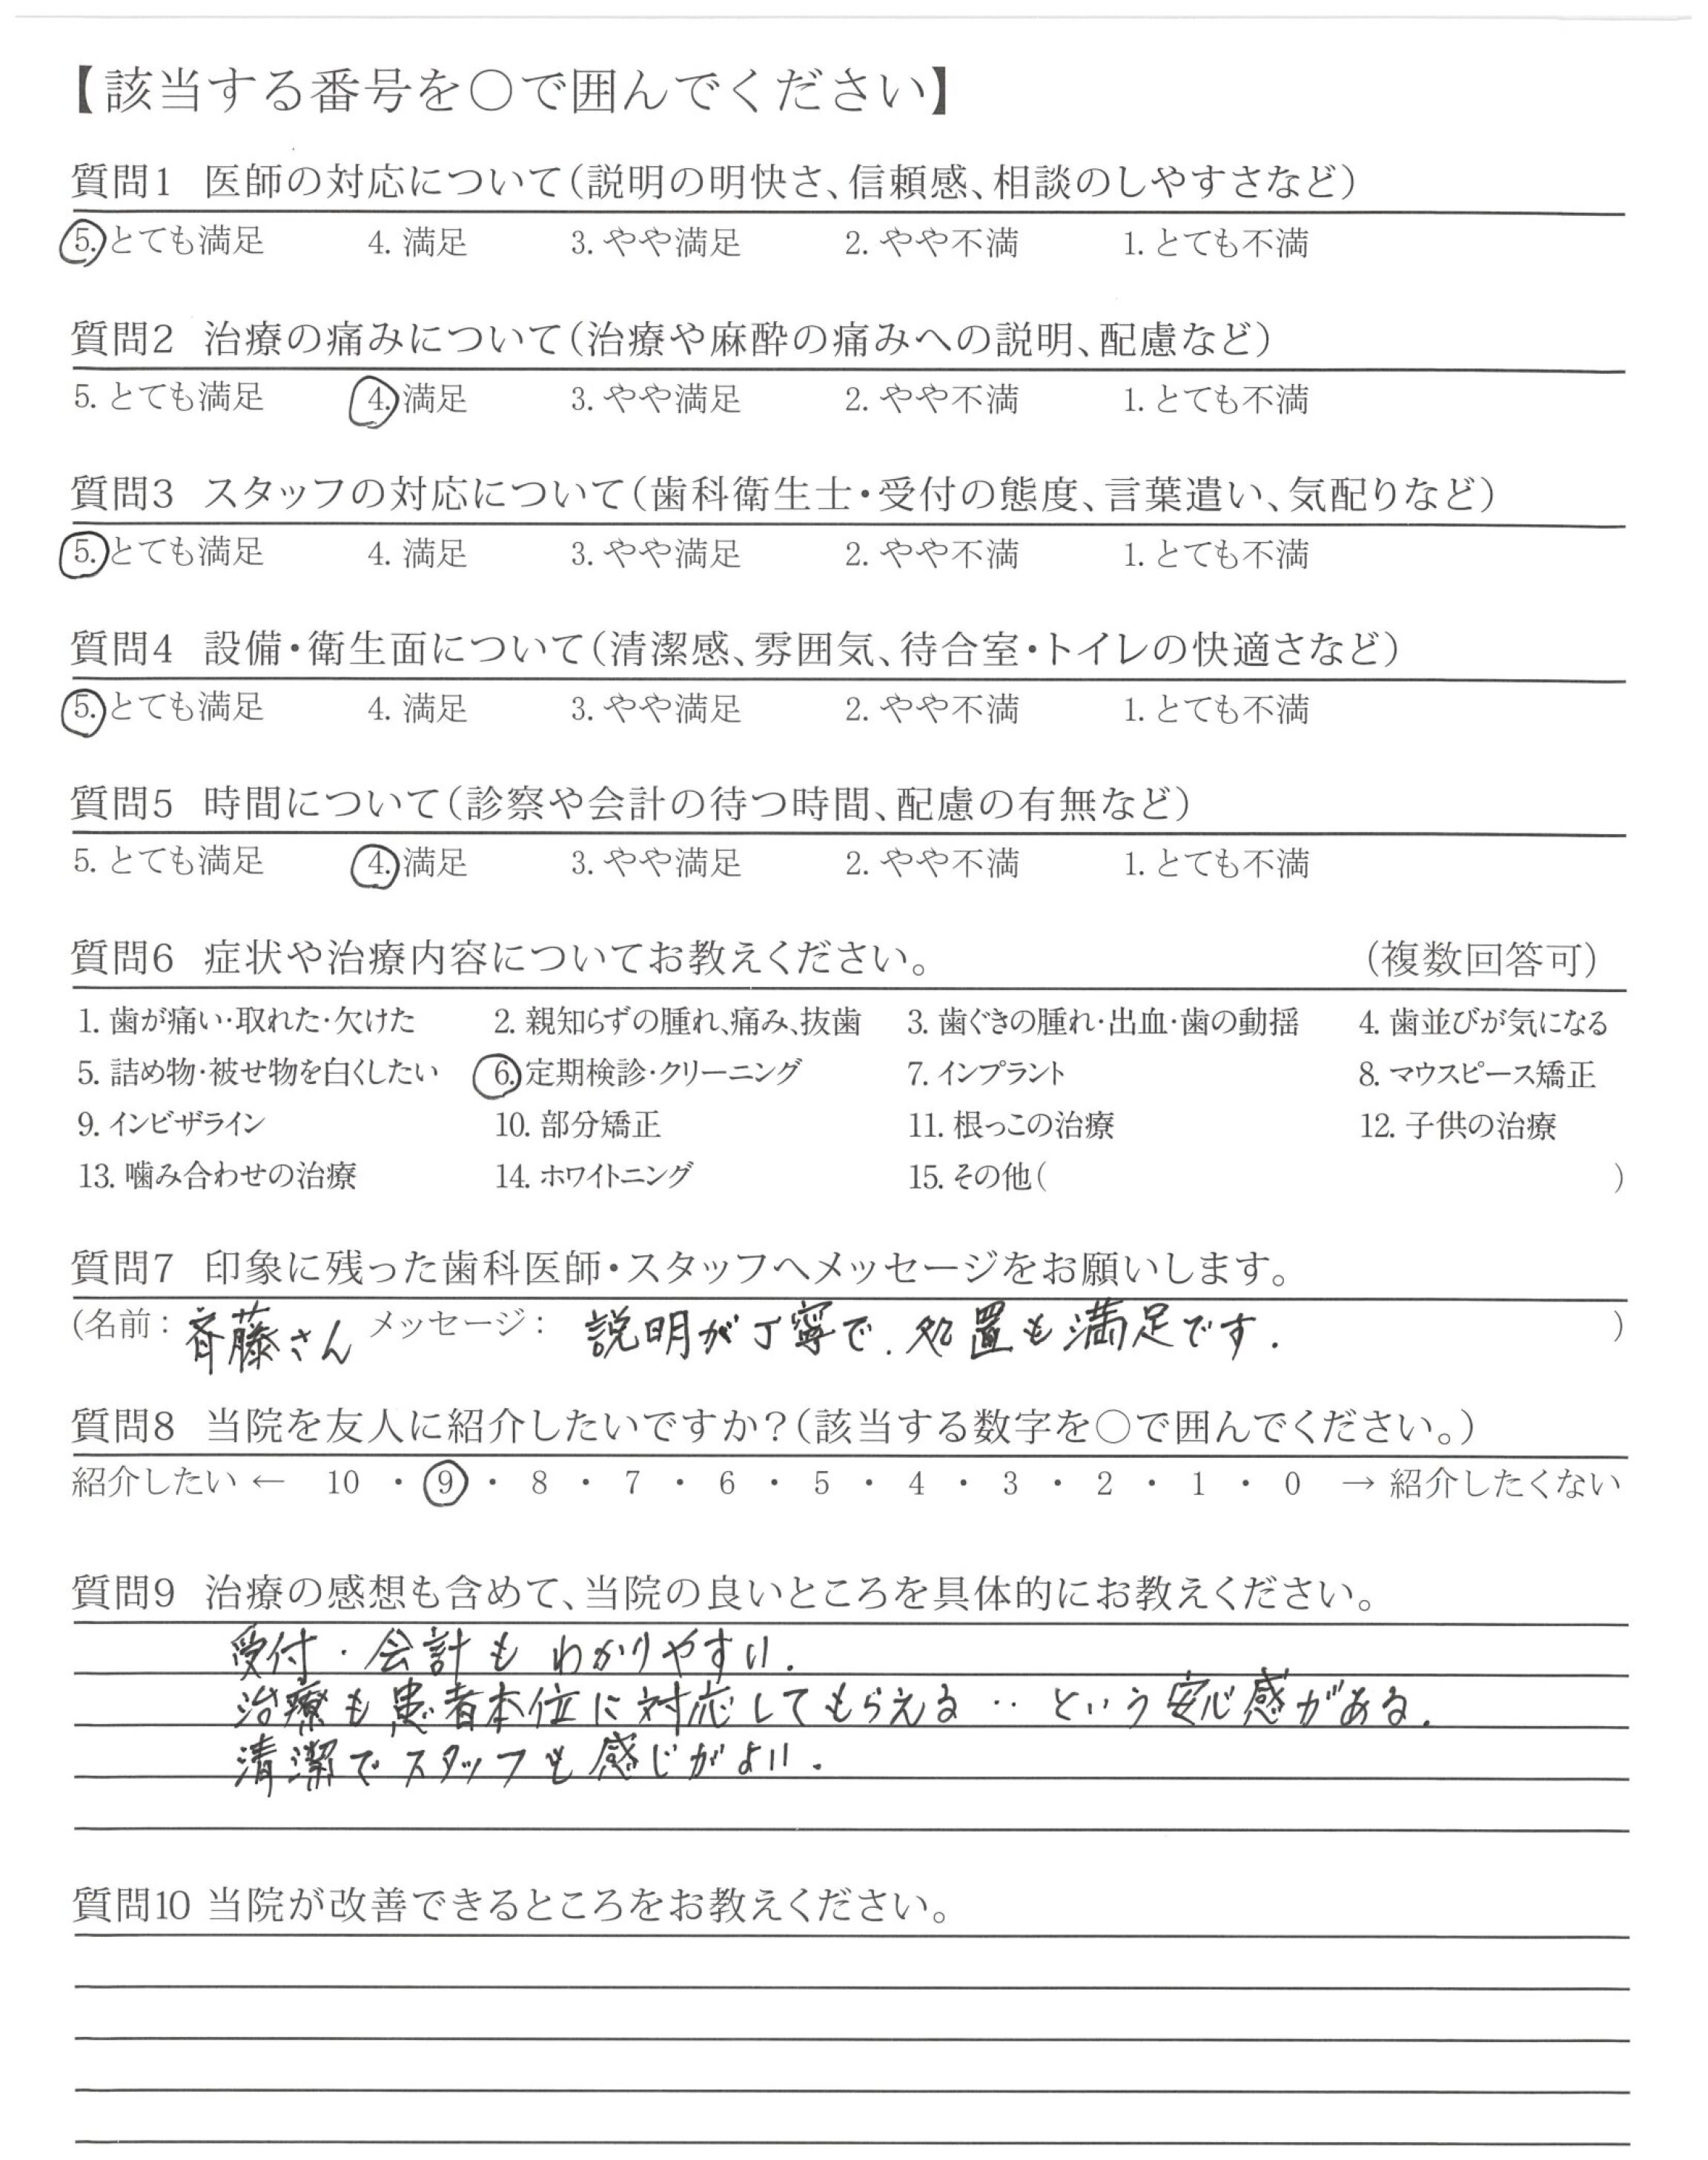 【該当する番号を○で囲んでください】
質問1 医師の対応について(説明の明快さ、信頼感、相談のしやすさなど)
5. とても満足 4. 満足 3. やや満足 2. やや不満 1. とても不満
質問2 治療の痛みについて(治療や麻酔の痛みへの説明、配慮など)
5. とても満足 4. 満足 3. やや満足 2. やや不満 1. とても不満
質問3 スタッフの対応について(歯科衛生士・受付の態度、言葉遣い、気配りなど)
5. とても満足 4. 満足 3. やや満足 2. やや不満 1. とても不満
質問4 設備・衛生面について(清潔感、雰囲気、待合室・トイレの快適さなど)
5. とても満足 4. 満足 3. やや満足 2. やや不満 1. とても不満
質問5 時間について(診察や会計の待つ時間、配慮の有無など)
5. とても満足 4. 満足 3. やや満足 2. やや不満 1. とても不満
質問6 症状や治療内容についてお教えください。 (複数回答可)
1. 歯が痛い・取れた・欠けた 2. 親知らずの腫れ、痛み、抜歯 3. 歯ぐきの腫れ・出血・歯の動揺 4. 歯並びが気になる
5. 詰め物・被せ物を白くしたい 6. 定期検診・クリーニング 7. インプラント 8. マウスピース矯正
9. インビザライン 10. 部分矯正 11. 根っこの治療 12. 子供の治療
13. 噛み合わせの治療 14. ホワイトニング 15. その他( )
質問7 印象に残った歯科医師・スタッフへメッセージをお願いします。
(名前: 斉藤さん メッセージ: 説明が丁寧で、処置も満足です. )
質問8 当院を友人に紹介したいですか?(該当する数字を○で囲んでください。)
紹介したい ← 10 ・ 9 ・ 8 ・ 7 ・ 6 ・ 5 ・ 4 ・ 3 ・ 2 ・ 1 ・ 0 → 紹介したくない
質問9 治療の感想も含めて、当院の良いところを具体的にお教えください。
受付・会計も わかりやすい.
治療も患者本位に対応してもらえる ‥ という安心感がある.
清潔でスタッフも感じがよい.
質問10 当院が改善できるところをお教えください。